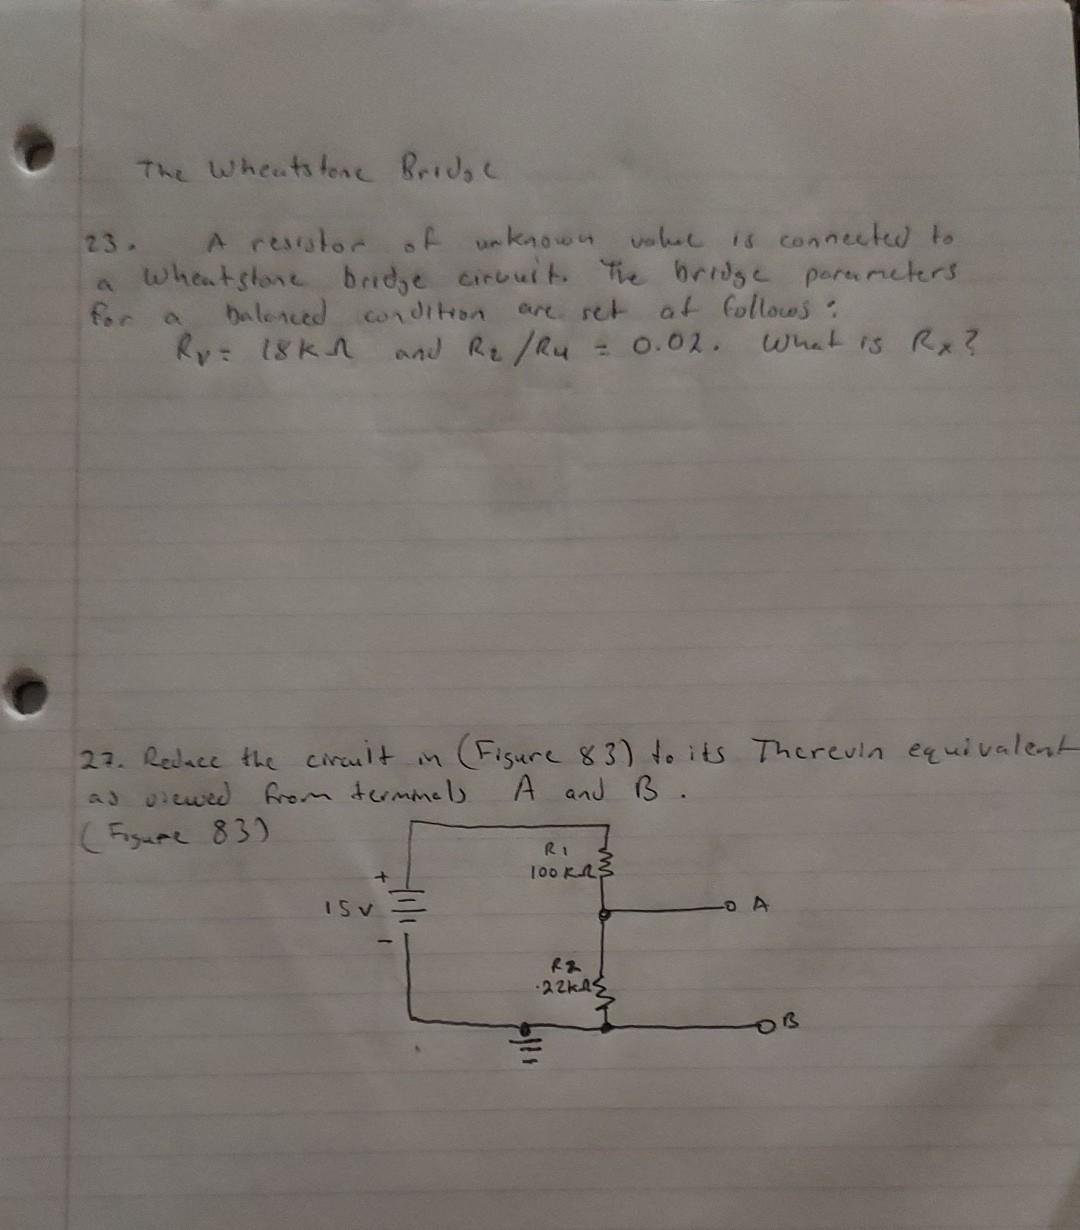 The Wheatstone Bridge
23. A resistor of unknown value is connected to
a Wheatstone bridge circuit. The bridge parameters
for a balanced condition are set at follows:
Rv = 18kΩ and R2/R4 = 0.02. What is Rx?
27. Reduce the circuit in (Figure 83) to its Therevin equivalent
as viewed from terminals A and B.
(Figure 83)
R1
100KΩ
+
15V
-
A
R2
22kΩ
B